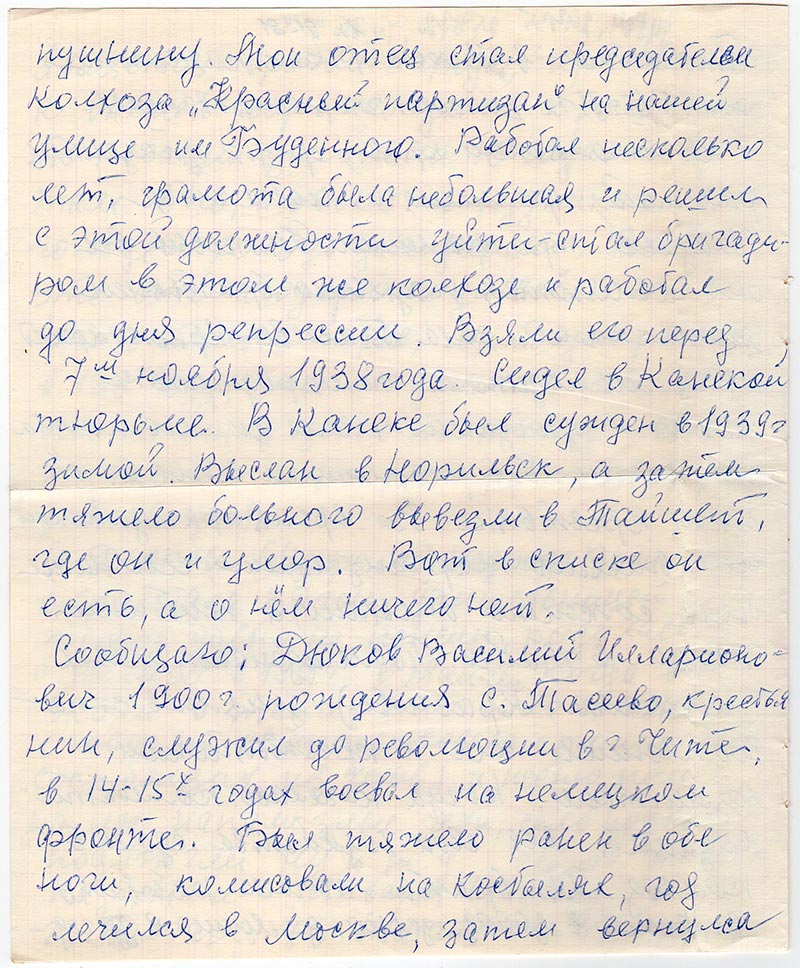 пушнину. Мой отец стал председателем
колхоза „Красный партизан" на нашей
улице им Буденного. Работал несколько
лет, грамота была небольшая и решил
с этой должности уйти-стал бригади-
ром в этом же колхозе и работал
до дня репрессии. Взяли его перед
7м ноября 1938 года. Сидел в Канской
тюрьме. В Канске был сужден в 1939 г
зимой. Выслан в Норильск, а затем
тяжело больного вывезли в Тайшет,
где он и умор. Вот в списке он
есть, а о нём ничего нет.
Сообщаю; Дюков Василий Илларионо-
вич 1900 г. рождения с. Тасеево, крестья
нин, служил до революции в г Чите,
в 14-15х годах воевал на немецком
фронте. Был тяжело ранен в обе
ноги, комисовали на костылях, год
лечился в Москве, затем вернулся